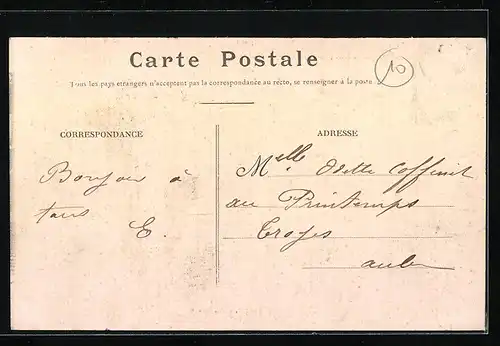 Carte Postale
10
Tous les pays étrangers n'acceptent pas la correspondance au recto, se renseigner à la poste
CORRESPONDANCE
ADRESSE
Bonjour à
tous
E.
Melle Odette Coffinet
au Printemps
Troyes
aube